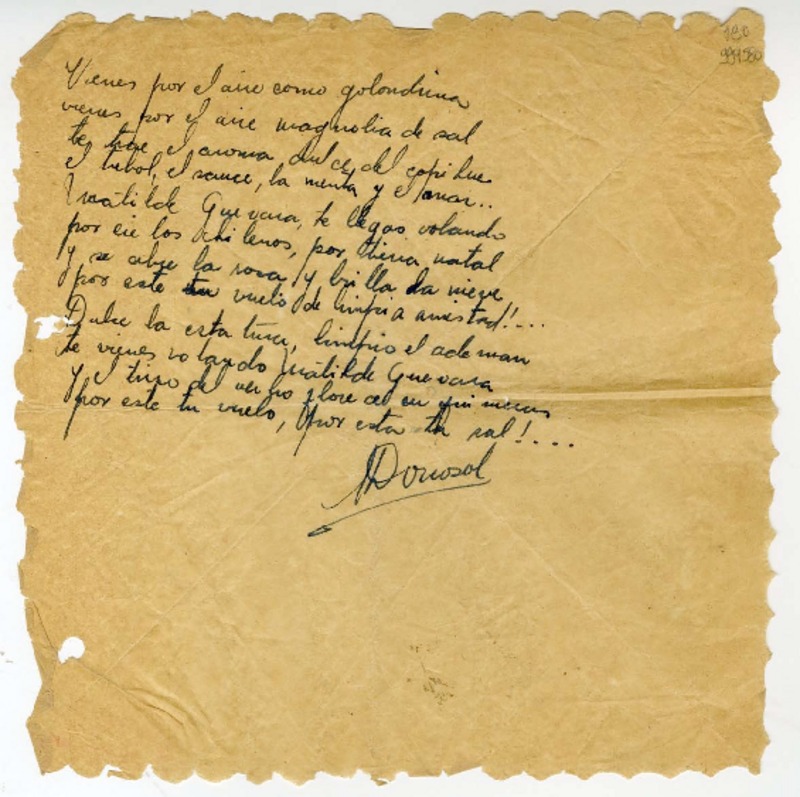 180
991980
Vienes por el aire como golondrina
vienes por el aire magnolia de sal
te trae el aroma dulce del copihue
el trébol, el sauce, la menta y el mar..
Matilde Guevara, te llegas volando
por cielos chilenos, por tierra natal
y se abre la rosa y brilla la nieve
por este tu vuelo de limpia amistad!...
Dulce la estatura, limpio el ademan
te vienes volando Matilde Guevara
y el trino del verso florece en quimeras
por este tu vuelo, por esta tu sal!...
Donosol